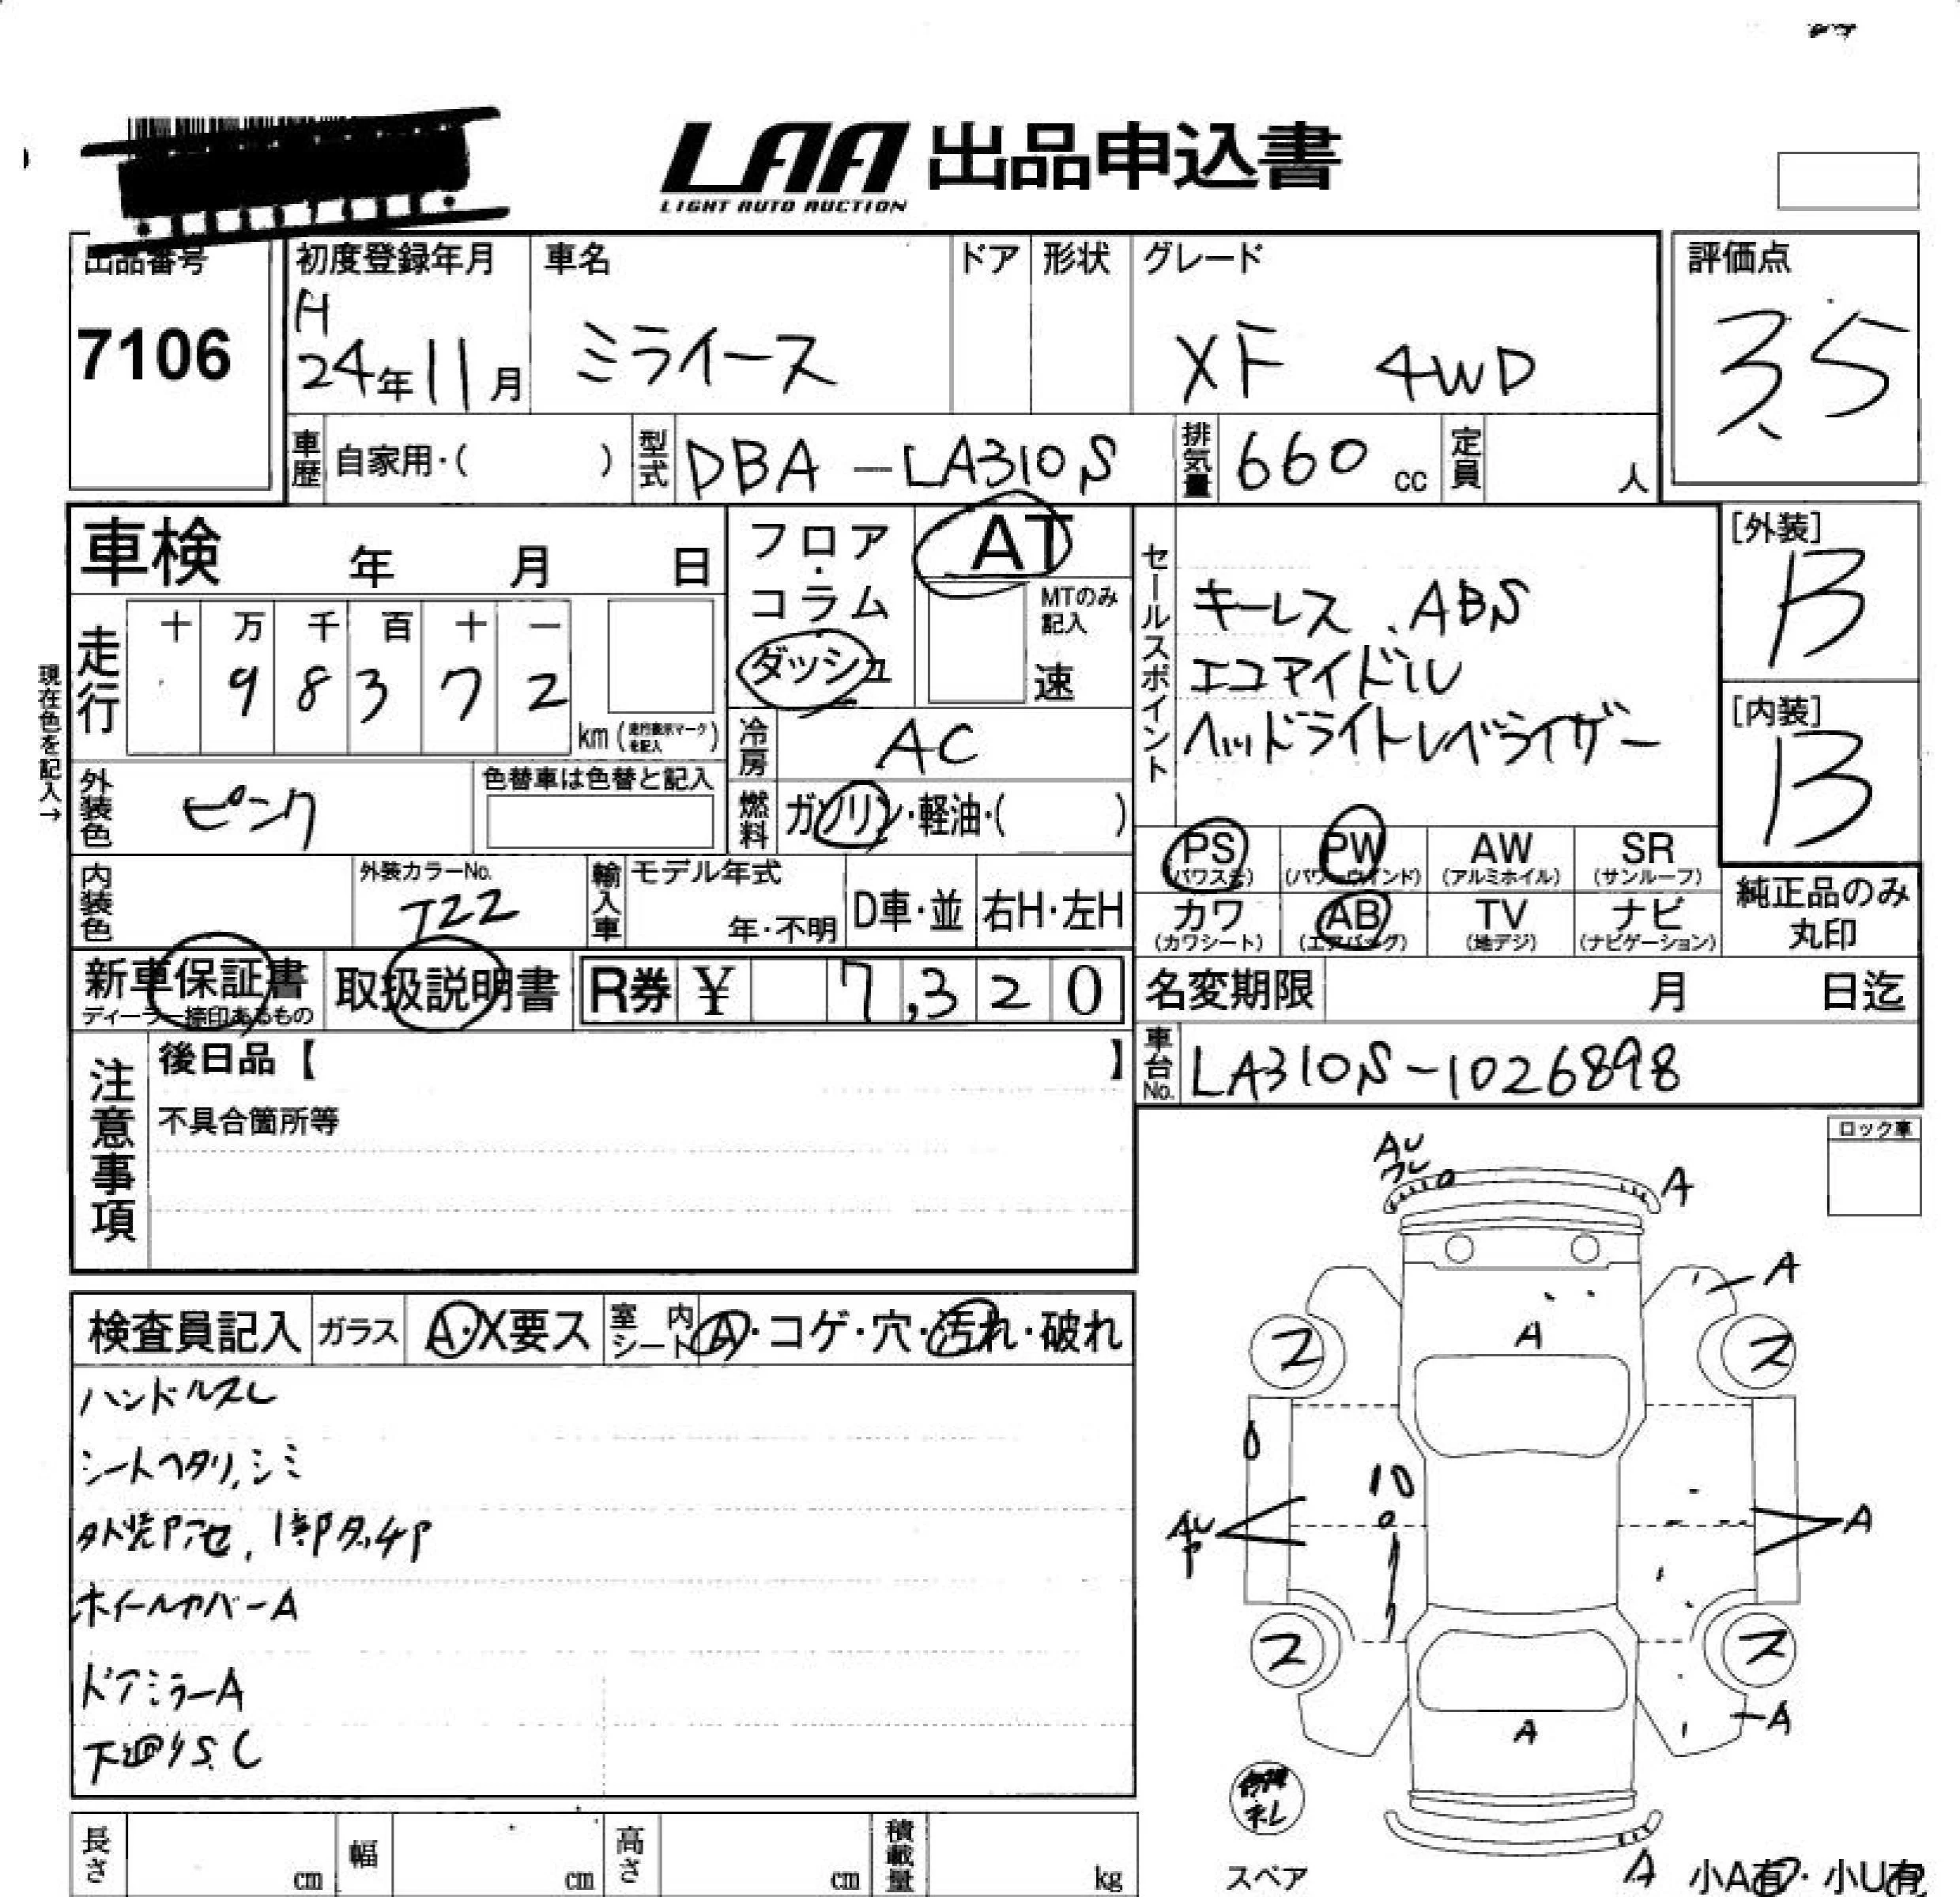 LAA 出品申込書
LIGHT AUTO AUCTION
出品番号
7106
初度登録年月
H
24年11月
車名
ミライース
ドア
形状
グレード
XF 4WD
評価点
3.5
車歴 自家用・( )
型式 DBA-LA310S
排気量 660 cc
定員 人
車検 年 月 日
走行
十 万 千 百 十 一
9 8 3 7 2
km
現在色を記入→
フロア・コラム
ダッシュ
AT
MTのみ記入
速
冷房 AC
燃料 ガソリン・軽油・( )
セールスポイント
キーレス、ABS
エコアイドル
ヘッドライトレベライザー
[外装]
B
[内装]
B
外装色 ピンク
色替車は色替と記入
内装色
外装カラーNo.
T22
輸入車 モデル年式
年・不明
D車・並
右H・左H
PS (パワステ)
PW (パワーウインド)
AW (アルミホイル)
SR (サンルーフ)
カワ (カワシート)
AB (エアバッグ)
TV (地デジ)
ナビ (ナビゲーション)
純正品のみ
丸印
新車保証書
ディーラー捺印あるもの
取扱説明書
R券 ¥ 7,320
名変期限 月 日迄
車台No. LA310S-1026898
注意事項
後日品【 】
不具合箇所等
ロック車
検査員記入
ガラス A・X要ス
室内シート A・コゲ・穴・汚れ・破れ
ハンドルスレ
シートヘタリ、シミ
ホイールカバーA
ドアミラーA
下廻りS.C
AU
A
A
A
フ
ス
10
AU
P
A
ス
ス
A
A
A
スペア
小A有・小U有
長さ cm
幅 cm
高さ cm
積載量 kg